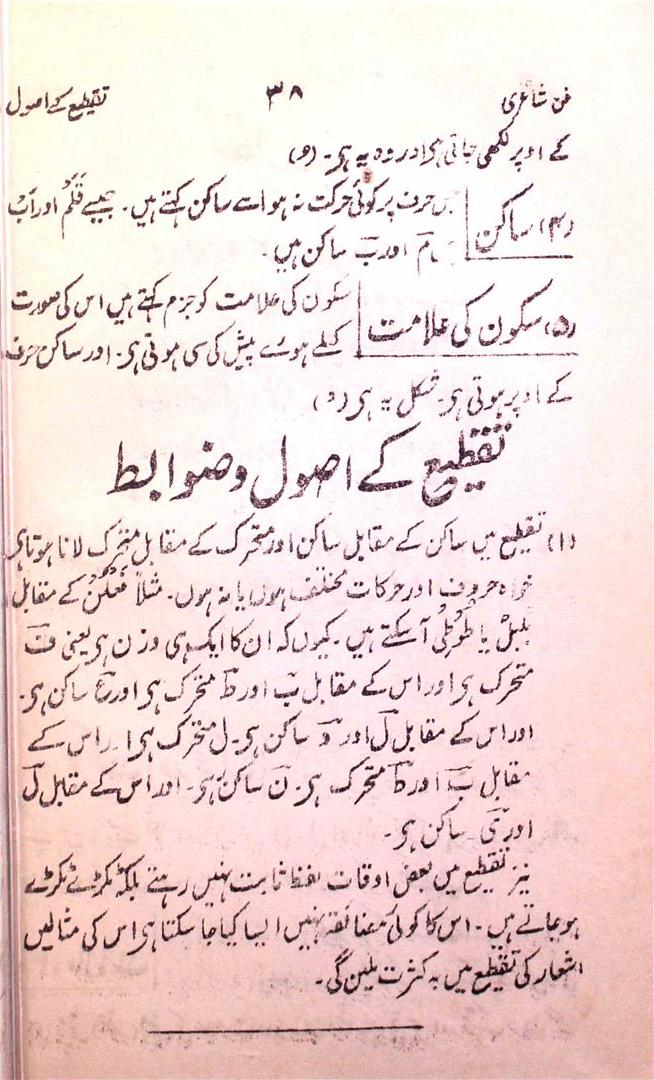 فن شاعری ۳۸ تقطیع کے اصول
کے اوپر لکھی جاتی ہی اور وہ یہ ہی۔ (و)
(۴) ساکن جس حرف پر کوئی حرکت نہ ہو اسے ساکن کہتے ہیں۔ جیسے قَلَمْ اور اَبْ
میں م اور ب ساکن ہیں۔
(۵) سکون کی علامت سکون کی علامت کو جزم کہتے ہیں اس کی صورت
کھلے ہوے پیش کی سی ہوتی ہی۔ اور ساکن حرف
کے اوپر ہوتی ہی۔ شکل یہ ہی (د)
تقطیع کے اصول وضوابط
(۱) تقطیع میں ساکن کے مقابل ساکن اور متحرک کے مقابل متحرک لانا ہوتا ہی
خواہ حروف اور حرکات مختلف ہوں یا نہ ہوں۔ مثلاً فَعْلُنْ کے مقابل
بلبل یا طوطی آ سکتے ہیں۔ کیوں کہ ان کا ایک ہی وزن ہی یعنی ف
متحرک ہی اور اس کے مقابل ب اور ط متحرک ہی اور ع ساکن ہی۔
اور اس کے مقابل ل اور و ساکن ہی۔ ل متحرک ہی اور اس کے
مقابل ب اور ط متحرک ہی۔ ن ساکن ہی۔ اور اس کے مقابل ل
اور ی ساکن ہی۔
نیز تقطیع میں بعض اوقات لفظ ثابت نہیں رہتے بلکہ ٹکڑے ٹکڑے
ہو جاتے ہیں۔ اس کا کوئی مضائقہ نہیں ایسا کیا جا سکتا ہی اس کی مثالیں
اشعار کی تقطیع میں بہ کثرت ملیں گی۔